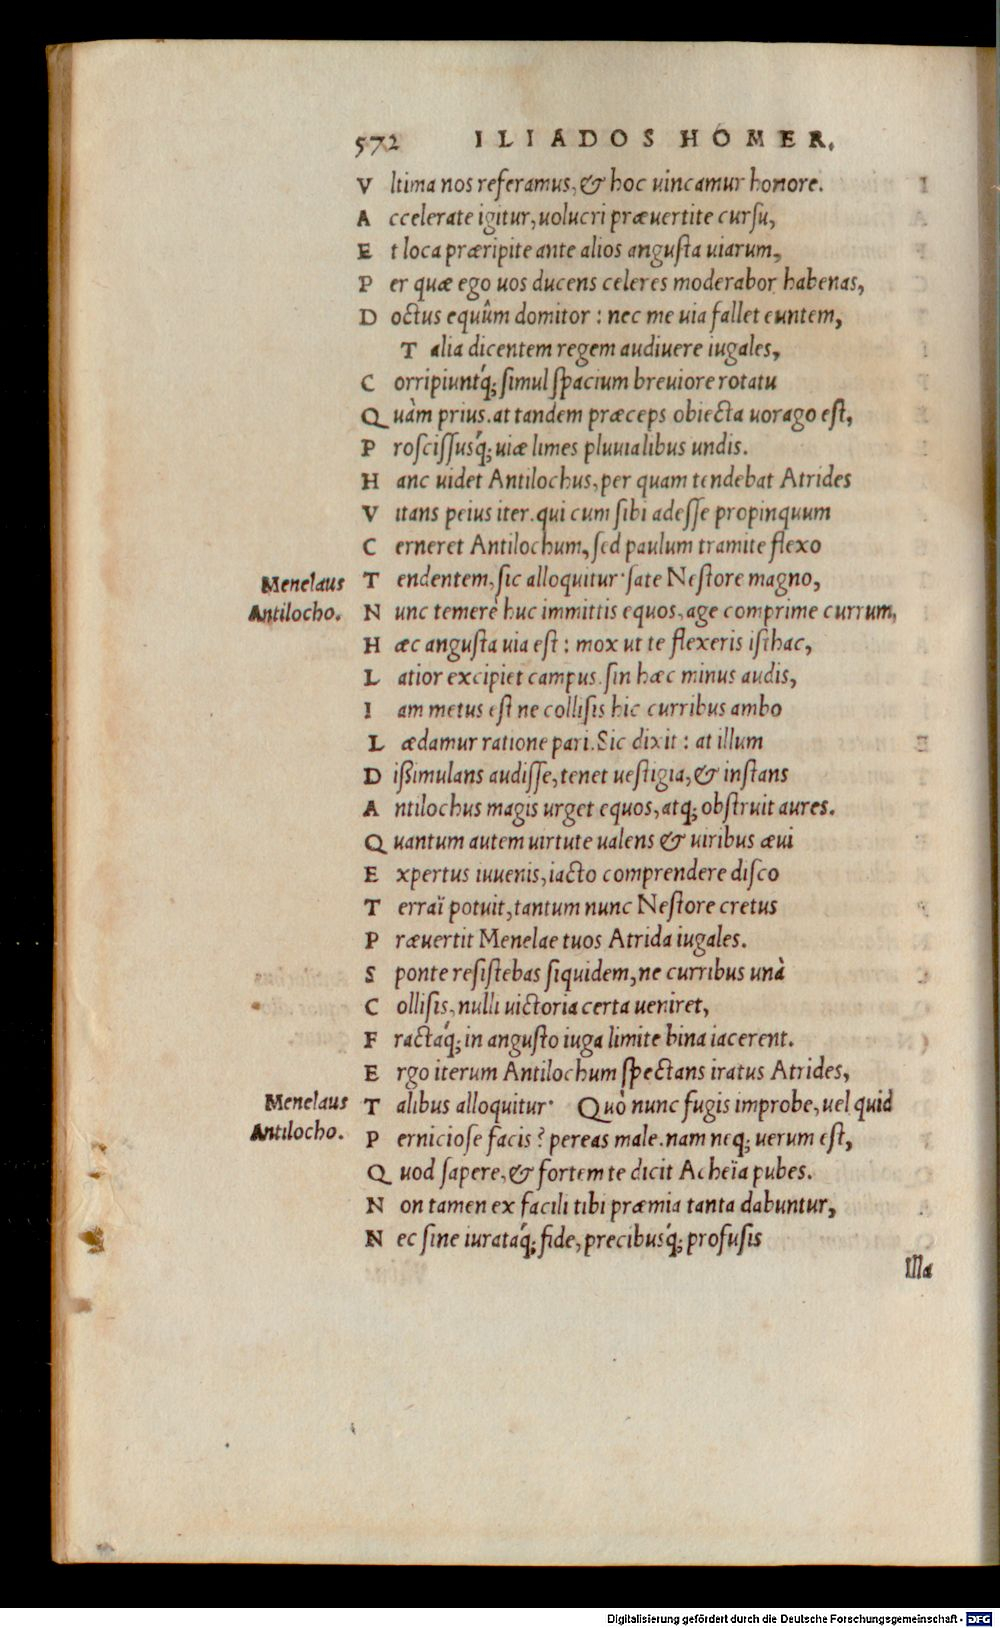 572 ILIADOS HOMER.
Vltima nos referamus, & hoc uincamur honore.
Accelerate igitur, uolucri præuertite cursu,
Et loca præripite ante alios angusta uiarum,
Per quæ ego uos ducens celeres moderabor habenas,
Doctus equûm domitor : nec me uia fallet euntem,
Talia dicentem regem audiuere iugales,
Corripiuntq́; simul spacium breuiore rotatu
Quàm prius. at tandem præceps obiecta uorago est,
Proscissusq́; uiæ limes pluuialibus undis.
Hanc uidet Antilochus, per quam tendebat Atrides
Vitans peius iter. qui cum sibi adesse propinquum
Cerneret Antilochum, sed paulum tramite flexo
Menelaus Tendentem, sic alloquitur· sate Nestore magno,
Antilocho. Nunc temerè huc immittis equos, age comprime currum,
Hæc angusta uia est : mox ut te flexeris isthac,
Latior excipiet campus. sin hæc minus audis,
Iam metus est ne collisis hic curribus ambo
Lædamur ratione pari. Sic dixit : at illum
Dissimulans audisse, tenet uestigia, & instans
Antilochus magis urget equos, atq; obstruit aures.
Quantum autem uirtute ualens & uiribus æui
Expertus iuuenis, iacto comprendere disco
Terraï potuit, tantum nunc Nestore cretus
Præuertit Menelae tuos Atrida iugales.
Sponte resistebas siquidem, ne curribus unà
Collisis, nulli uictoria certa ueniret,
Fractaq́; in angusto iuga limite bina iacerent.
Ergo iterum Antilochum spectans iratus Atrides,
Menelaus Talibus alloquitur· Quò nunc fugis improbe, uel quid
Antilocho. Perniciose facis ? pereas male. nam neq; uerum est,
Quod sapere, & fortem te dicit Acheïa pubes.
Non tamen ex facili tibi præmia tanta dabuntur,
Nec sine iurataq́; fide, precibusq́; profusis
Illa
Digitalisierung gefördert durch die Deutsche Forschungsgemeinschaft - DFG